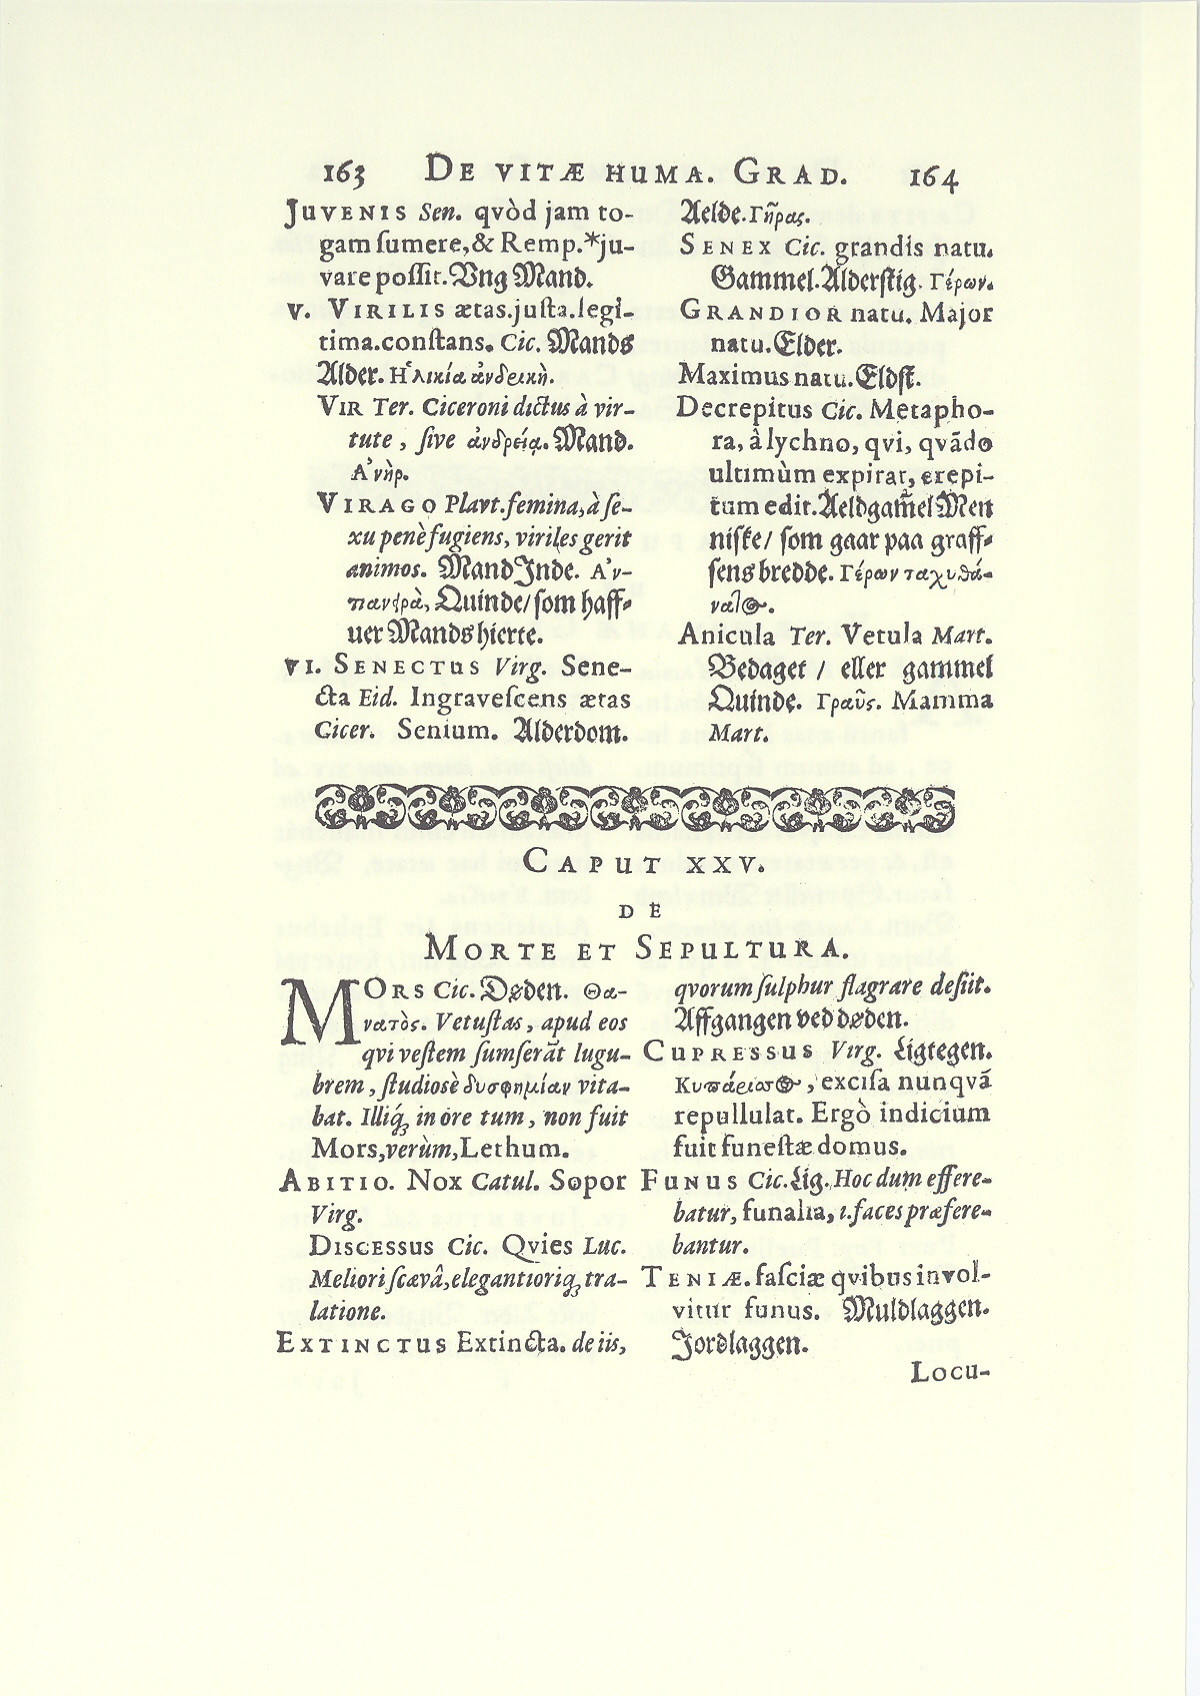 163 DE VITÆ HUMA. GRAD. 164
JUVENIS Sen. qvòd jam to-
gam ſumere,& Remp.*ju-
vare poſſit. Vng Mand.
V. VIRILIS ætas.juſta.legi-
tima.conſtans. Cic. Mands
Alder. Ἡλικία ἀνδρικὴ.
VIR Ter. Ciceroni dictus à vir-
tute, ſive ἀνδρεία. Mand.
Ἀνὴρ.
VIRAGO Plavt. femina, à ſe-
xu penè fugiens, viriles gerit
animos. MandInde. Ἀν-
Quinde/ ſom haff-
uer Mands hierte.
VI. SENECTUS Virg. Sene-
cta Eid. Ingraveſcens ætas
Cicer. Senium. Alderdom.
Aelde. Γῆρας.
SENEX Cic. grandis natu.
Gammel. Alderſtig. Γέρων.
GRANDIOR natu. Major
natu. Elder.
Maximus natu. Eldſt.
Decrepitus Cic. Metapho-
ra, â lychno, qvi, qvādo
ultimùm expirat, crepi-
tum edit. Aeldgam̃el Men
niſke/ ſom gaar paa graff-
ſens bredde. Γέρων ταχυθά-
νατος.
Anicula Ter. Vetula Mart.
Bedaget / eller gammel
Quinde. Γραῦς. Mamma
Mart.
CAPUT XXV.
DE
MORTE ET SEPULTURA.
MORS Cic. Døden. Θα-
νατὸς. Vetuſtas, apud eos
qvi veſtem ſumſerāt lugu-
brem, ſtudiosè δυσφημίαν vita-
bat. Illiq́ꝫ in ore tum, non fuit
Mors, verùm, Lethum.
ABITIO. Nox Catul. Sopor
Virg.
DISCESSUS Cic. Qvies Luc.
Meliori ſcævâ, elegantioriqꝫ tra-
latione.
EXTINCTUS Extincta. de iis,
qvorum ſulphur flagrare deſiit.
Affgangen ved døden.
CUPRESSUS Virg. Ligtegen.
Κυπάρισσος, exciſa nunqvā
repullulat. Ergò indicium
fuit funeſtæ domus.
FUNUS Cic. Lig. Hoc dum effere-
batur, funalia, ı. faces præfere-
bantur.
TENIÆ. faſciæ qvibus invol-
vitur funus. Muldlaggen.
Jordlaggen.
LOCU-